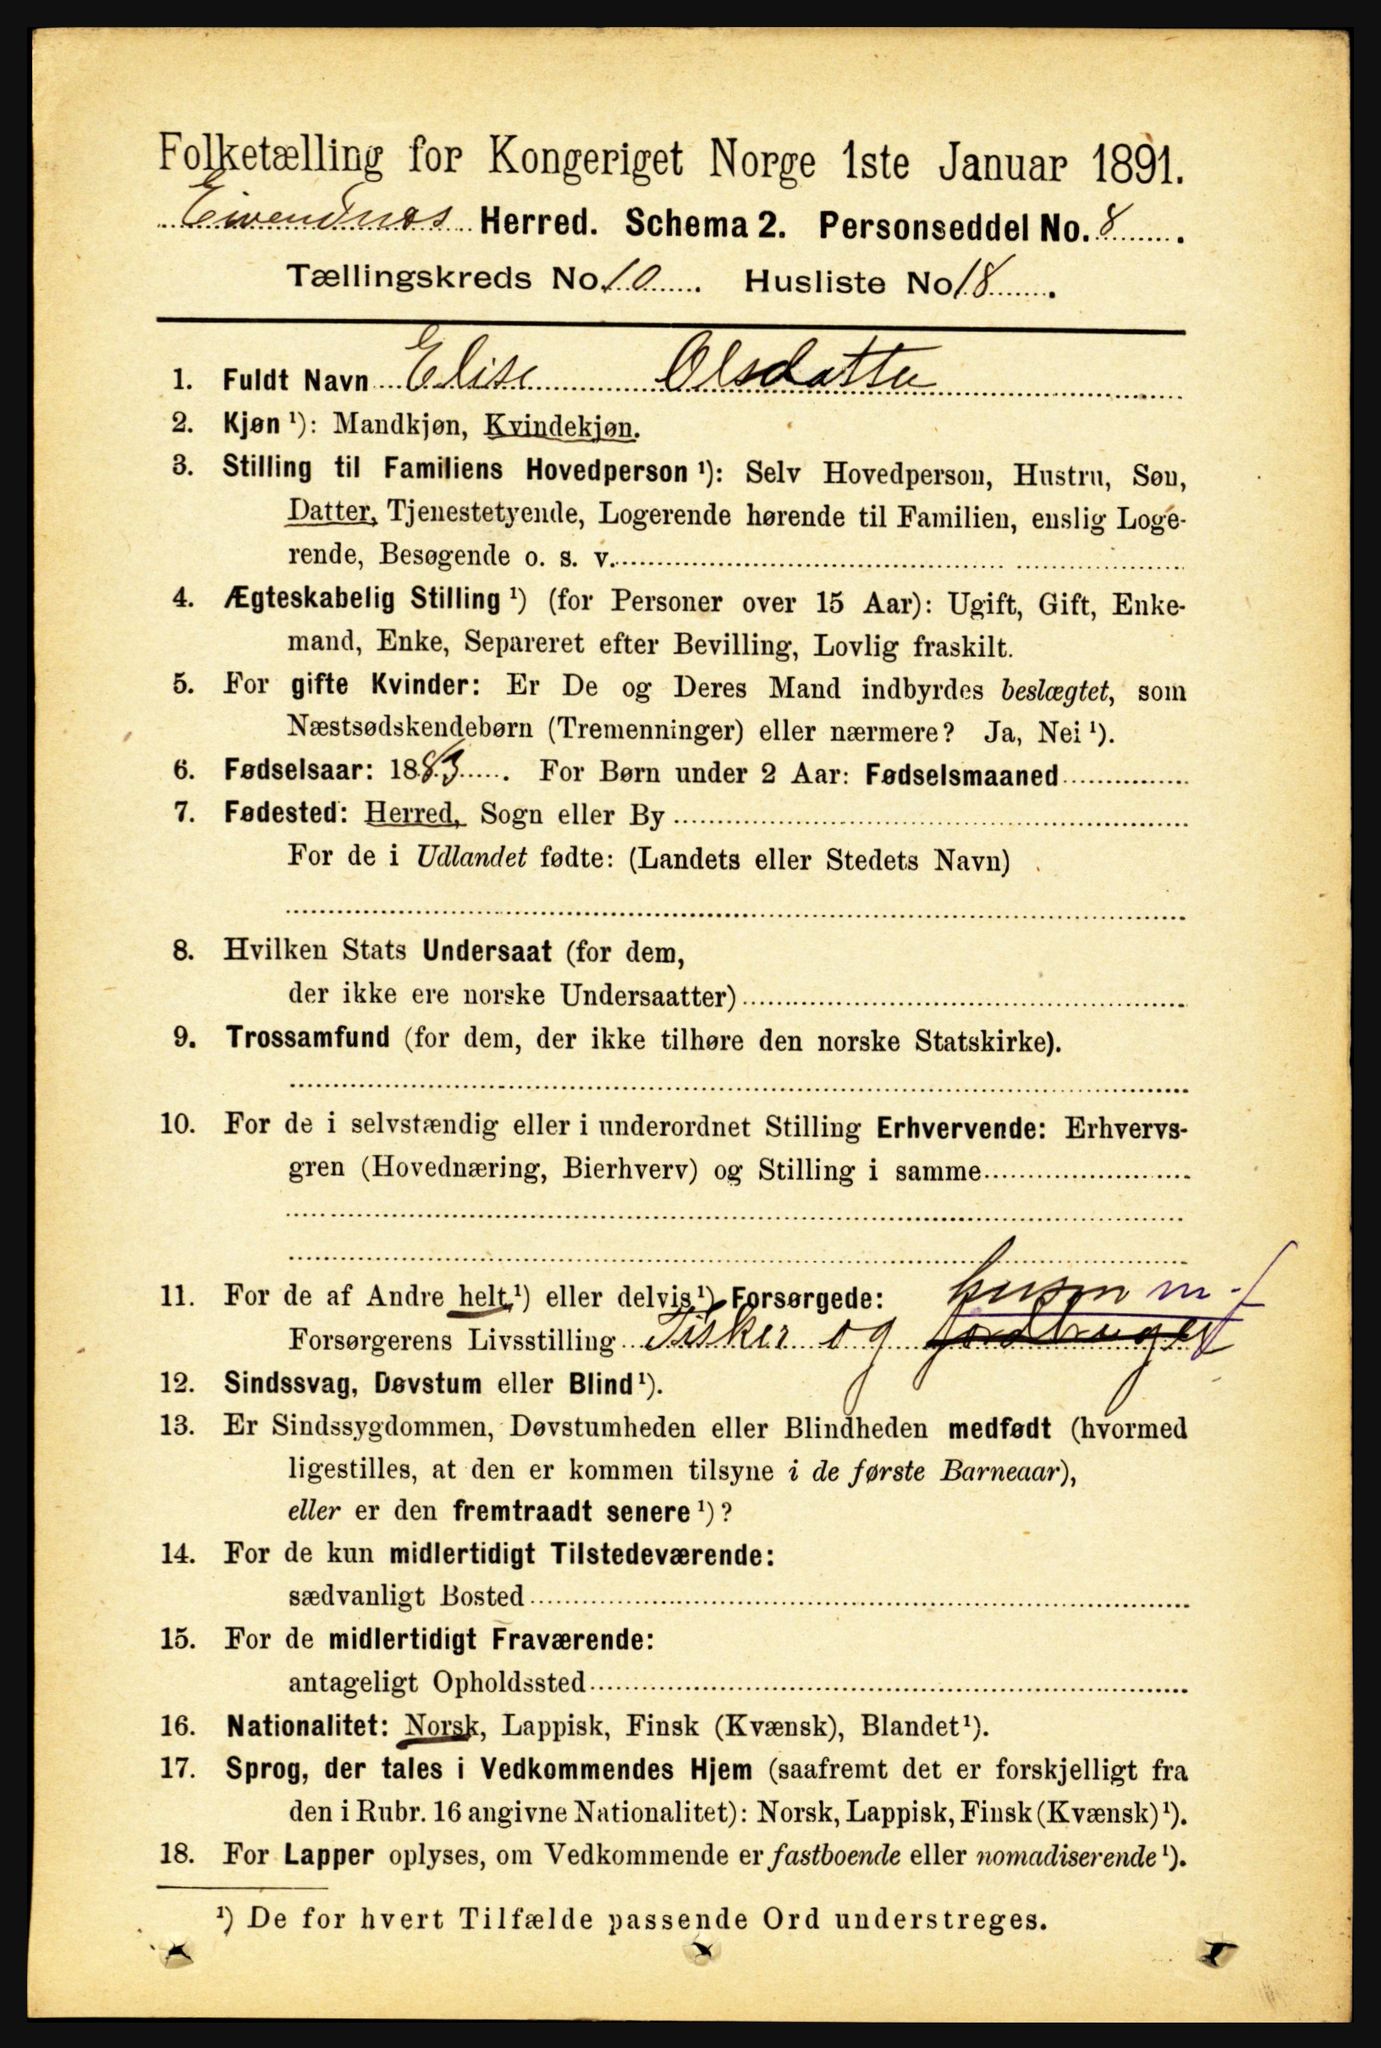 Folketælling for Kongeriget Norge 1ste Januar 1891.
Eivendnæs Herred. Schema 2. Personseddel No. 8.
Tællingskreds No. 10. Husliste No 18.
1. Fuldt Navn Elise Olsdatter
2. Kjøn ¹): Mandkjøn, Kvindekjøn.
3. Stilling til Familiens Hovedperson ¹): Selv Hovedperson, Hustru, Søn,
Datter, Tjenestetyende, Logerende hørende til Familien, enslig Loge-
rende, Besøgende o. s. v.
4. Ægteskabelig Stilling ¹) (for Personer over 15 Aar): Ugift, Gift, Enke-
mand, Enke, Separeret efter Bevilling, Lovlig fraskilt.
5. For gifte Kvinder: Er De og Deres Mand indbyrdes beslægtet, som
Næstsødskendebørn (Tremenninger) eller nærmere? Ja, Nei ¹).
6. Fødselsaar: 1883. For Børn under 2 Aar: Fødselsmaaned
7. Fødested: Herred, Sogn eller By
For de i Udlandet fødte: (Landets eller Stedets Navn)
8. Hvilken Stats Undersaat (for dem,
der ikke ere norske Undersaatter)
9. Trossamfund (for dem, der ikke tilhøre den norske Statskirke).
10. For de i selvstændig eller i underordnet Stilling Erhvervende: Erhvervs-
gren (Hovednæring, Bierhverv) og Stilling i samme
11. For de af Andre helt,¹) eller delvis ¹) Forsørgede: husm m. f
Forsørgerens Livsstilling Fisker og jordbruger
12. Sindssvag, Døvstum eller Blind ¹).
13. Er Sindssygdommen, Døvstumheden eller Blindheden medfødt (hvormed
ligestilles, at den er kommen tilsyne i de første Barneaar),
eller er den fremtraadt senere ¹)?
14. For de kun midlertidigt Tilstedeværende:
sædvanligt Bosted
15. For de midlertidigt Fraværende:
antageligt Opholdssted
16. Nationalitet: Norsk, Lappisk, Finsk (Kvænsk), Blandet ¹).
17. Sprog, der tales i Vedkommendes Hjem (saafremt det er forskjelligt fra
den i Rubr. 16 angivne Nationalitet): Norsk, Lappisk, Finsk (Kvænsk) ¹).
18. For Lapper oplyses, om Vedkommende er fastboende eller nomadiserende ¹).
¹) De for hvert Tilfælde passende Ord understreges.